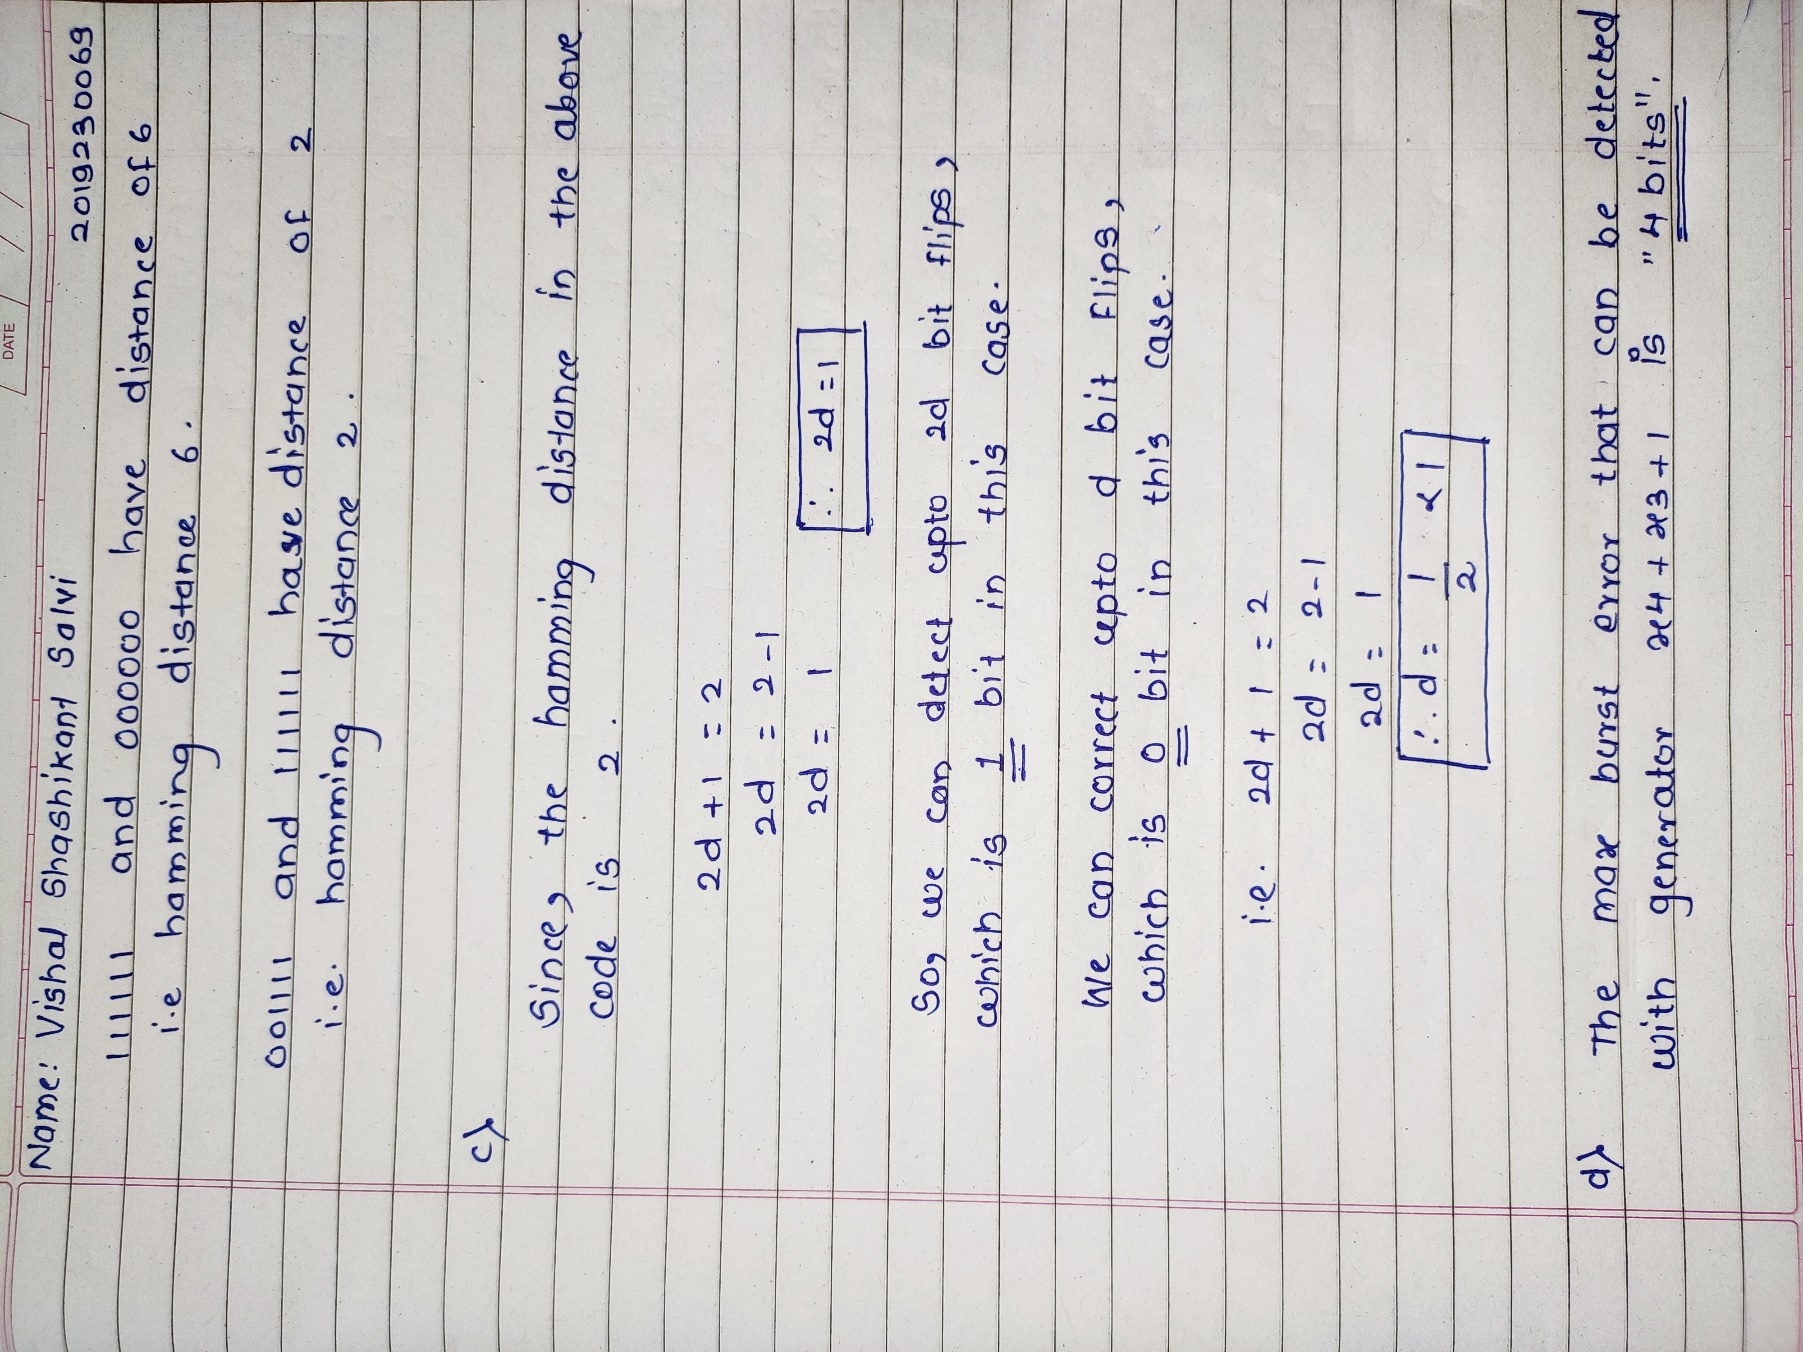 DATE
Name: Vishal Shashikant Salvi
2019230069
111111 and 000000 have distance of 6
i.e hamming distance 6.
001111 and 111111 have distance of 2
i.e. hamming distance 2.
c)
Since, the hamming distance in the above
code is 2.
2d + 1 = 2
2d = 2 - 1
2d = 1 ∴ 2d = 1
So, we can detect upto 2d bit flips,
which is 1 bit in this case.
We can correct upto d bit flips,
which is 0 bit in this case.
i.e. 2d + 1 = 2
2d = 2 - 1
2d = 1
∴ d = 1/2 < 1
d) The max burst error that can be detected
with generator x4 + x3 + 1 is "4 bits".